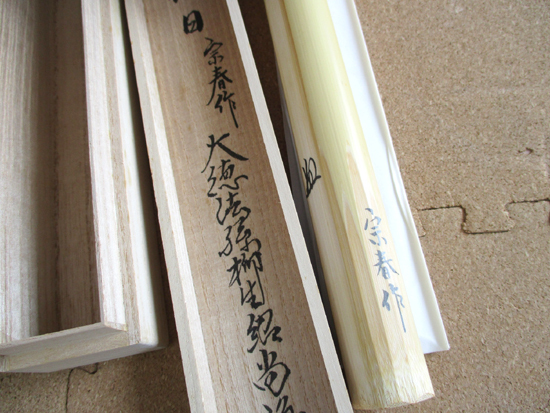 日 宗春作 大徳法孫柳生紹尚
宗春作